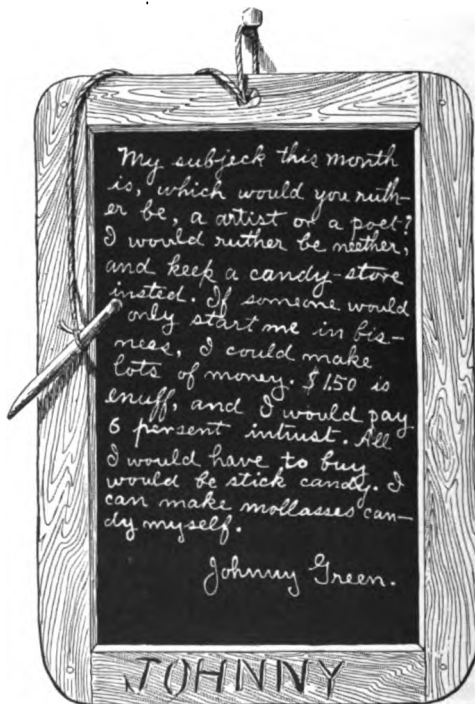 My subjeck this month
is, which would you ruth-
er be, a artist or a poet?
I would ruther be neether,
and keep a candy-store
insted. If someone would
only start me in bis-
ness, I could make
lots of money. $1.50 is
enuff, and I would pay
6 persent intrust. All
I would have to buy
would be stick candy. I
can make mollasses can-
dy myself.
Johnny Green.
JOHNNY